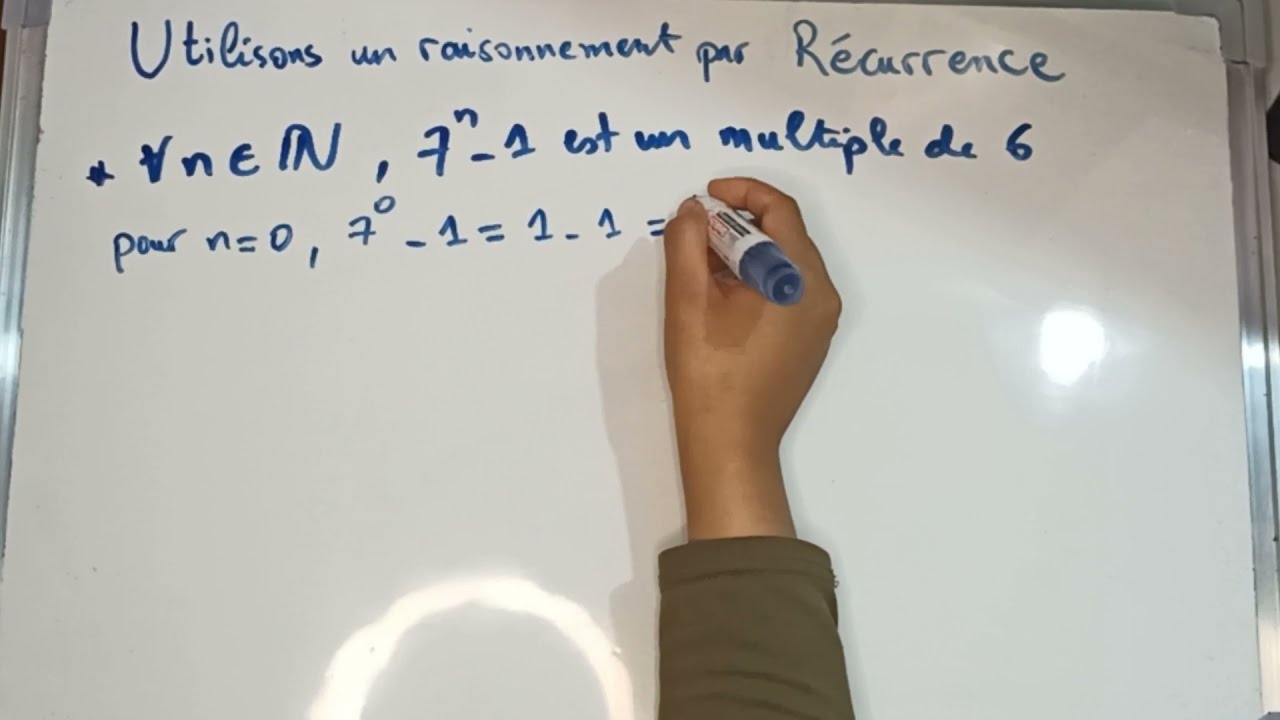 Utilisons un raisonnement par Récurrence
* ∀n ∈ ℕ, 7ⁿ - 1 est un multiple de 6
pour n = 0, 7⁰ - 1 = 1 - 1 =